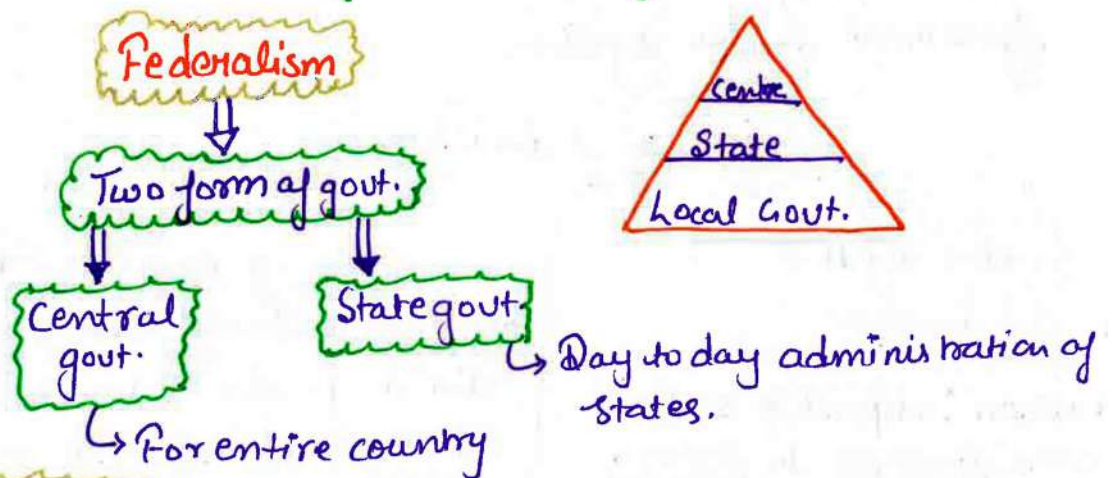 Federalism
Two form of govt.
Central
govt.
State govt.
For entire country
Day to day administration of
states.
Centre
State
Local Govt.